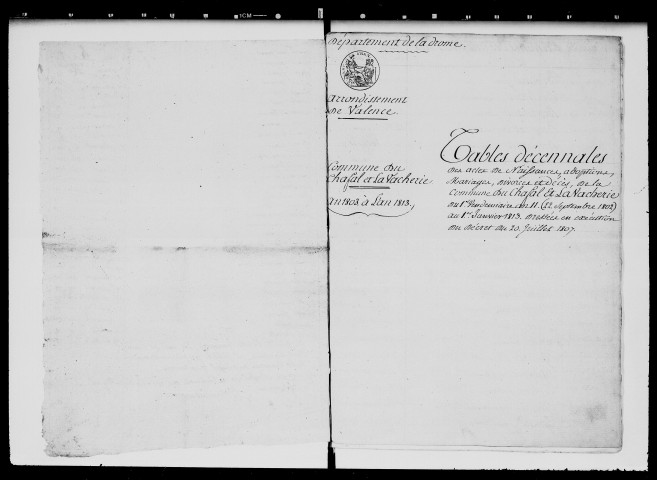 Département de la drome.
arrondissement
de Valence.
Commune du
Chafal et La Vacherie
an 1803. à L'an 1813.,
Tables décennales
des actes de Naissances, adoptions,
Mariages, divorces et décès, de la
Commune du Chafal et La Vacherie
du 1er Vendemiaire an 11. (22 Septembre 1802)
au 1er Janvier 1813. dressées en exécution
du décret du 20. Juillet 1807.
1CM